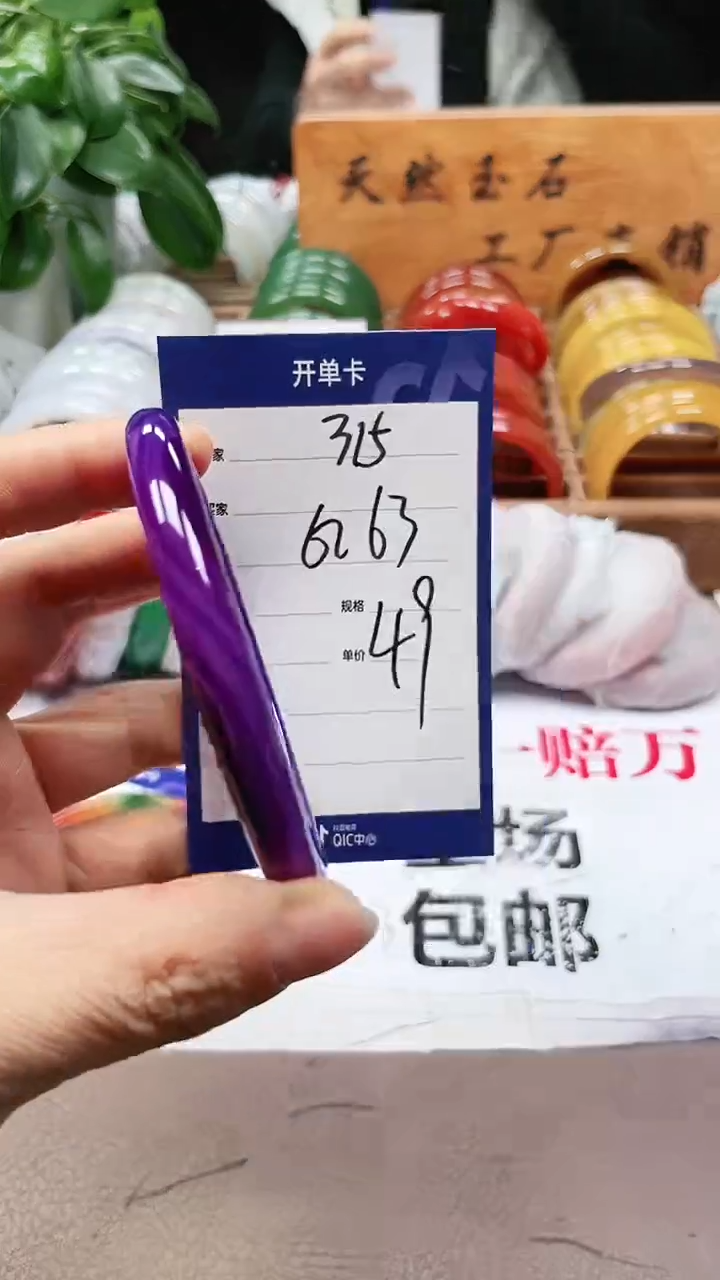 天然玉石
工厂直销
开单卡
家 315
家 62 63
规格
单价 49
QIC中心
一赔万
全场
包邮